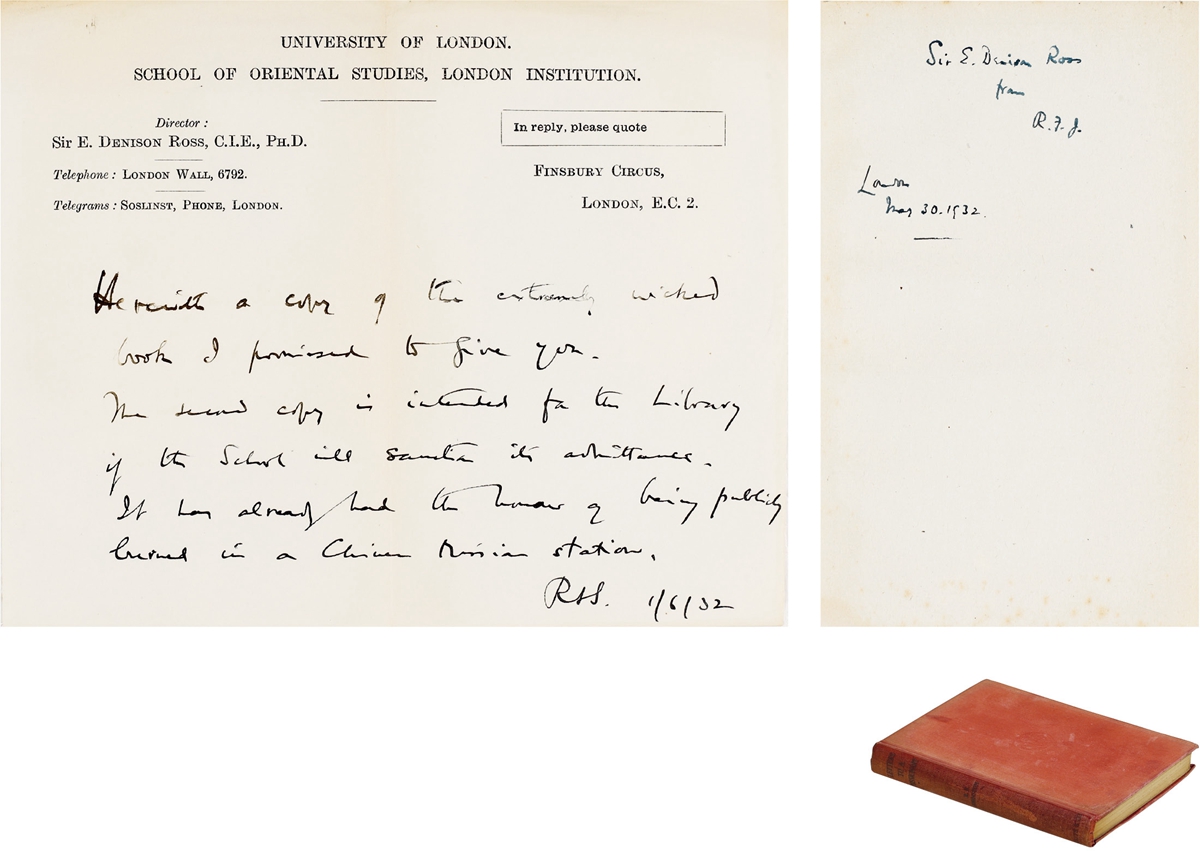 UNIVERSITY OF LONDON.
SCHOOL OF ORIENTAL STUDIES, LONDON INSTITUTION.
Director :
Sir E. DENISON ROSS, C.I.E., PH.D.
Telephone : LONDON WALL, 6792.
Telegrams : SOSLINST, PHONE, LONDON.
In reply, please quote
FINSBURY CIRCUS,
LONDON, E.C. 2.
Herewith a copy of the extremely wicked
book I promised to give you.
The second copy is intended for the Library
if the School will sanction its admittance.
It has already had the honour of being publicly
burned in a Chinese Mission station.
1/6/32
Sir E. Denison Ross
from
R.F.J.
London
30.1932.